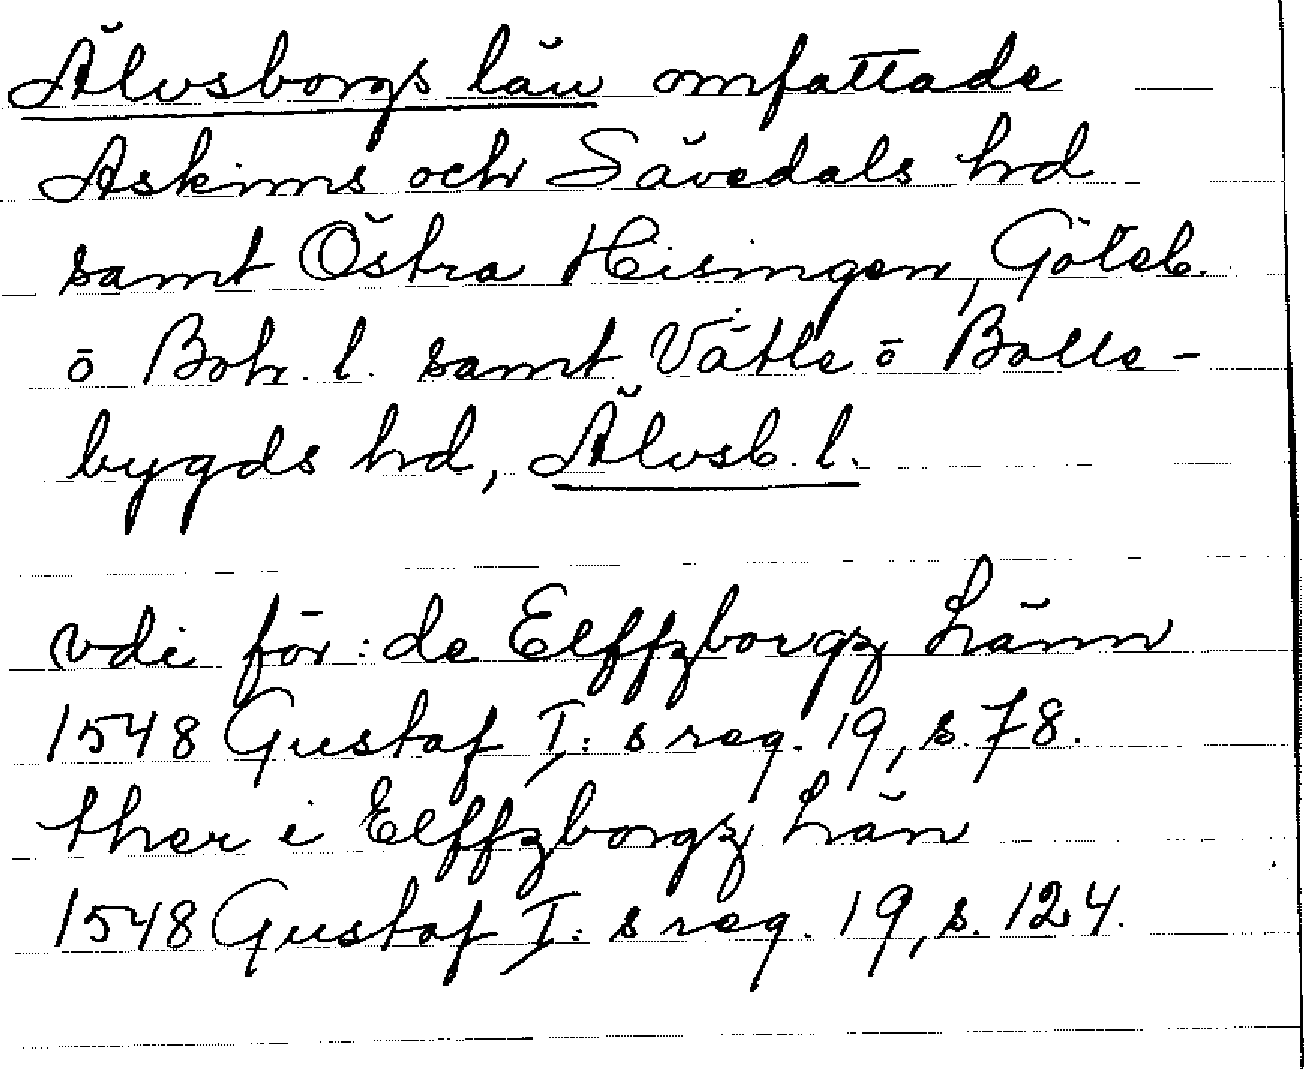 Älvsborgs län omfattade
Askims och Sävedals hd
samt Östra Hisingen, Göteb.
o Boh. l. samt Vätle o Bolle-
bygds hd, Älvsb. l.
vdi för: de Elffzborgz Länn
1548 Gustaf I: s reg. 19, s. 78.
ther i Elffzborgz Län
1548 Gustaf I: s reg. 19, s. 124.